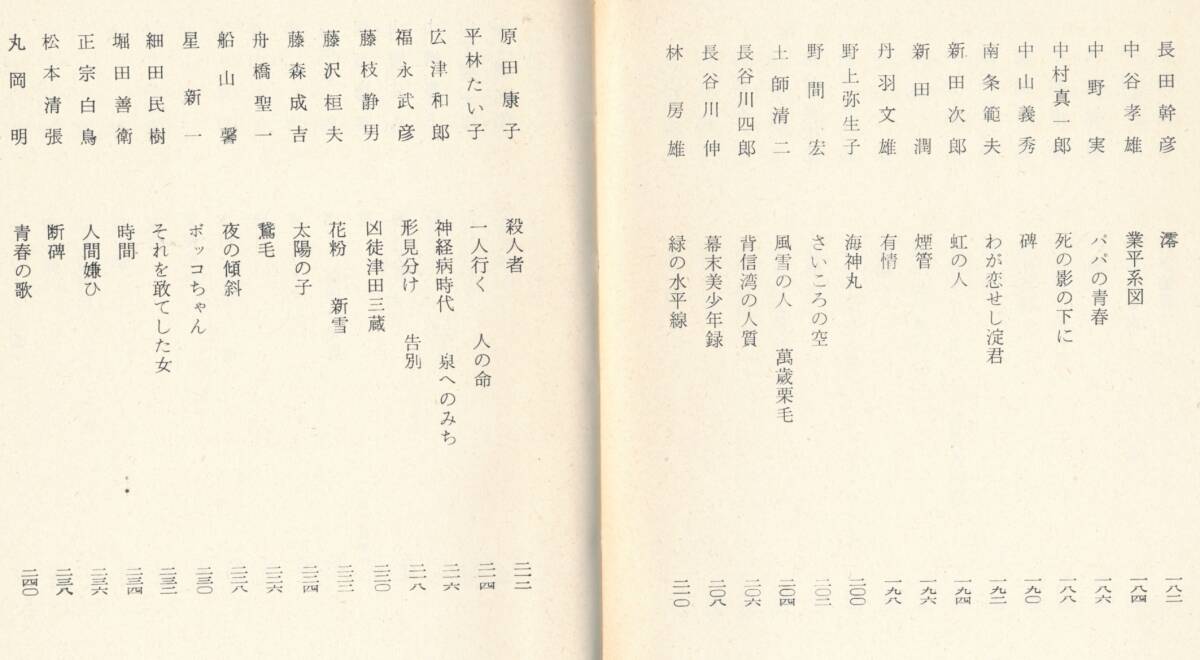 長田幹彦 澪 一八二
中谷孝雄 業平系図 一八四
中野実 パパの青春 一八六
中村真一郎 死の影の下に 一八八
中山義秀 碑 一九〇
南条範夫 わが恋せし淀君 一九二
新田次郎 虹の人 一九四
新田潤 煙管 一九六
丹羽文雄 有情 一九八
野上弥生子 海神丸 二〇〇
野間宏 さいころの空 二〇二
土師清二 風雪の人 萬歳栗毛 二〇四
長谷川四郎 背信湾の人質 二〇六
長谷川伸 幕末美少年録 二〇八
林房雄 緑の水平線 二一〇
原田康子 殺人者 二一二
平林たい子 一人行く 人の命 二一四
広津和郎 神経病時代 泉へのみち 二一六
福永武彦 形見分け 告別 二一八
藤枝静男 凶徒津田三蔵 二二〇
藤沢桓夫 花粉 新雪 二二二
藤森成吉 太陽の子 二二四
舟橋聖一 鵞毛 二二六
船山馨 夜の傾斜 二二八
星新一 ボッコちゃん 二三〇
細田民樹 それを敢てした女 二三二
堀田善衛 時間 二三四
正宗白鳥 人間嫌ひ 二三六
松本清張 断碑 二三八
丸岡明 青春の歌 二四〇